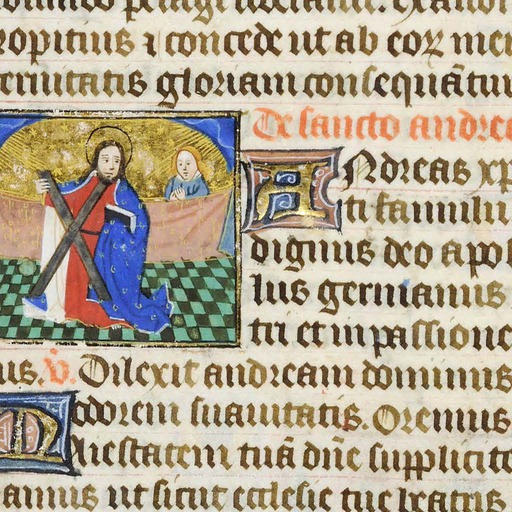 ropitius ⁊ concede ut ab eoꝝ me
ternitatis gloriam consequãtur
De sancto andrea
Andreas xp
ti famulu
dignus deo apo
lus germanus
tri et in passione
nis. ℣. Dilexit andream dominus
odorem suavitatis. Oremus
Maiestatem tuã dñe supplicite
amus ut sicut ecclesie tue beatus